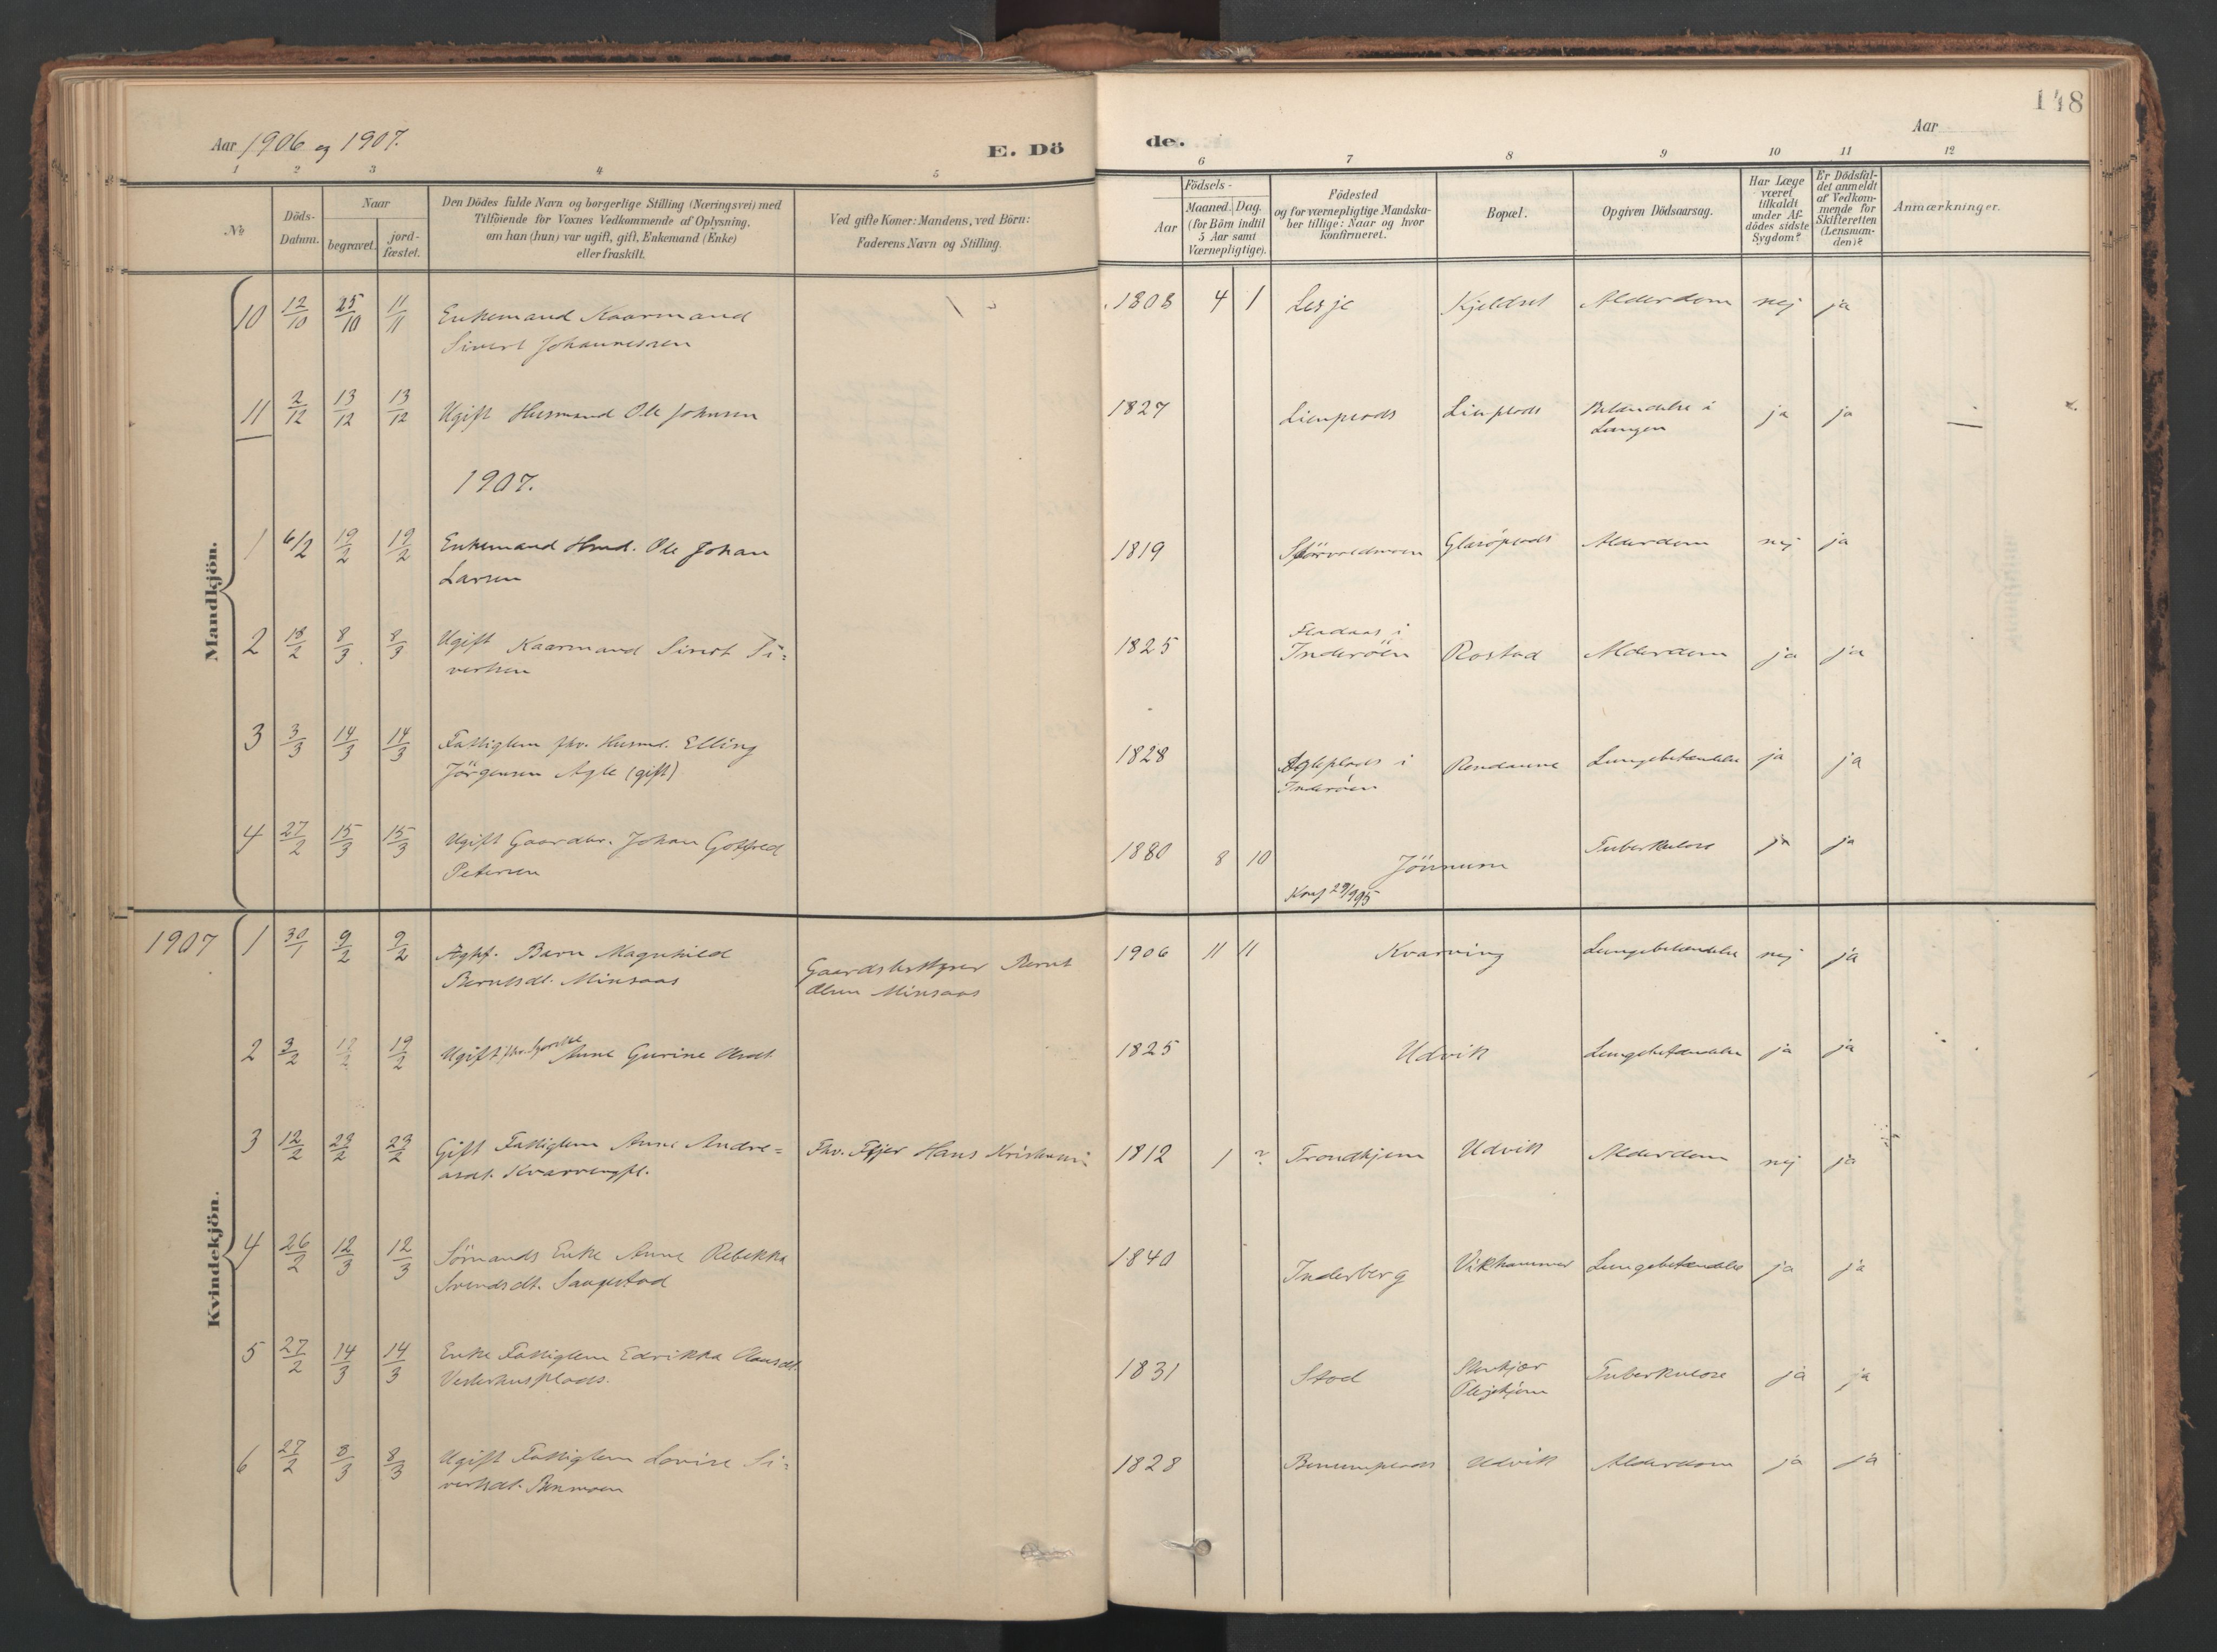 148
Aar 1906 og 1907.
E. Dö
de.
Aar
1 2 3 4 5 6 7 8 9 10 11 12
No
Döds-
Datum.
Naar
begravet.
jord-
fæstet.
Den Dödes fulde Navn og borgerlige Stilling (Næringsvei) med
Tilföiende for Voxnes Vedkommende af Oplysning,
om han (hun) var ugift, gift, Enkemand (Enke)
eller fraskilt.
Ved gifte Koner: Mandens, ved Börn:
Faderens Navn og Stilling.
Födsels-
Aar
Maaned. Dag.
(for Börn indtil
5 Aar samt
Værnepligtige).
Födested
og for værnepligtige Mandska-
ber tillige: Naar og hvor
konfirmeret.
Bopæl.
Opgiven Dödsaarsag.
Har Læge
været
tilkaldt
under Af-
dödes sidste
Sygdom?
Er Dödsfal-
det anmeldt
af Vedkom-
mende for
Skifteretten
(Lensman-
den)?
Anmærkninger.
Mandkjön.
10 12/10 25/10 11/11 Enkemand Kaarmand 1808 4 1 Lesje Kjeldset Alderdom nej ja
Sivert Johannessen
11 2/12 13/12 13/12 Ugift Husmand Ole Johnsen 1827 Lienplads Lienplads Betændelse i ja ja
Lungen
1907.
1 6/2 19/2 19/2 Enkemand Hmd. Ole Johan 1819 Glasöplads Alderdom nej ja
Larsen
2 18/2 8/3 8/3 Ugift Kaarmand Sivert Si= 1825 i Rostad Alderdom ja ja
Inderöen
vertsen
3 3/3 14/3 14/3 Fattiglem fhv. Husmd. Elling 1828 Agleplads i Lungebetændelse ja ja
Jörgensen Agle (gift) Inderöen
4 27/2 15/3 15/3 Ugift Gaardbr. Johan Gotfred 1880 8 10 Jönnum Tuberkulose ja ja
Petersen Konf 29/9 95
Kvindekjön.
1907 1 30/1 9/2 9/2 Ægtf. Barn Magnhild Gaardsbestyrer Bernt 1906 11 11 Kvarving Lungebetændelse nej ja
Berntsdt. Minsaas Olsen Minsaas
2 3/2 19/2 Ugift fhv. Anne Gurine 1825 Udvik Lungebetændelse ja ja
3 12/2 23/2 23/2 Gift Fattiglem Anne Andre= Fhv. Hans 1812 1 ? Trondhjem Udvik Alderdom nej ja
asdt. Kvarvingpl.
4 26/2 12/3 12/3 Sömands Enke Anne Rebekka 1840 Inderberg Vikhammer Lungebetændelse ja ja
Svendsdt. Saugestad
5 27/2 14/3 14/3 Enke Fattiglem Edrikka Olausdt. 1831 Stod Stenkjær Tuberkulose ja ja
Vesterhusplads. Pleiehjem
6 27/2 8/3 8/3 Ugift Fattiglem Lovise Si= 1828 Udvik Alderdom ja ja
vertsdt.